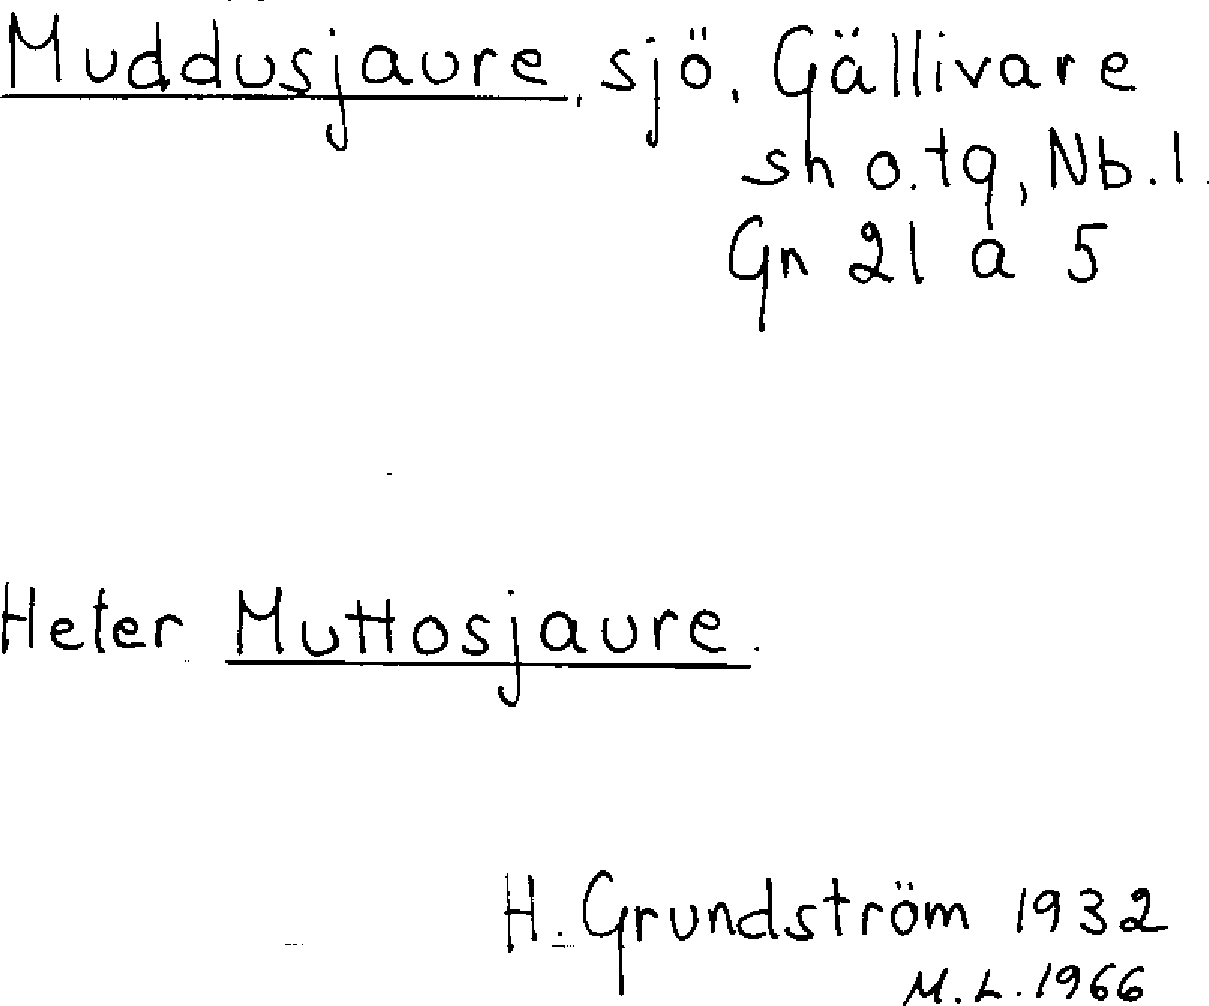 Muddusjaure, sjö, Gällivare
sh o. tg, Nb. l.
Gn 21 a 5
Heter Muttosjaure.
H. Grundström 1932
M. L. 1966